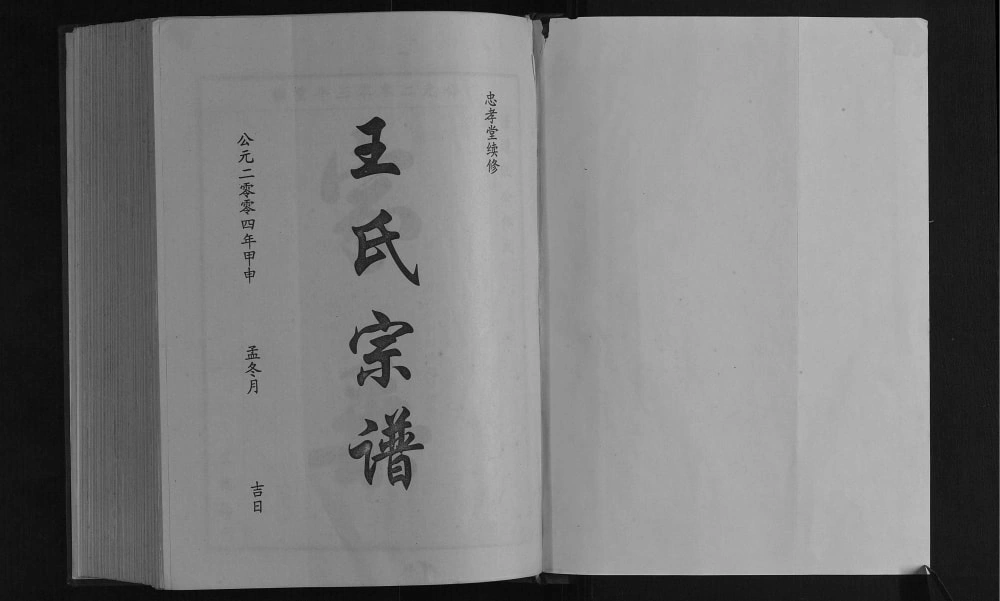 忠孝堂续修
王氏宗谱
公元二零零四年甲申 孟冬月 吉日